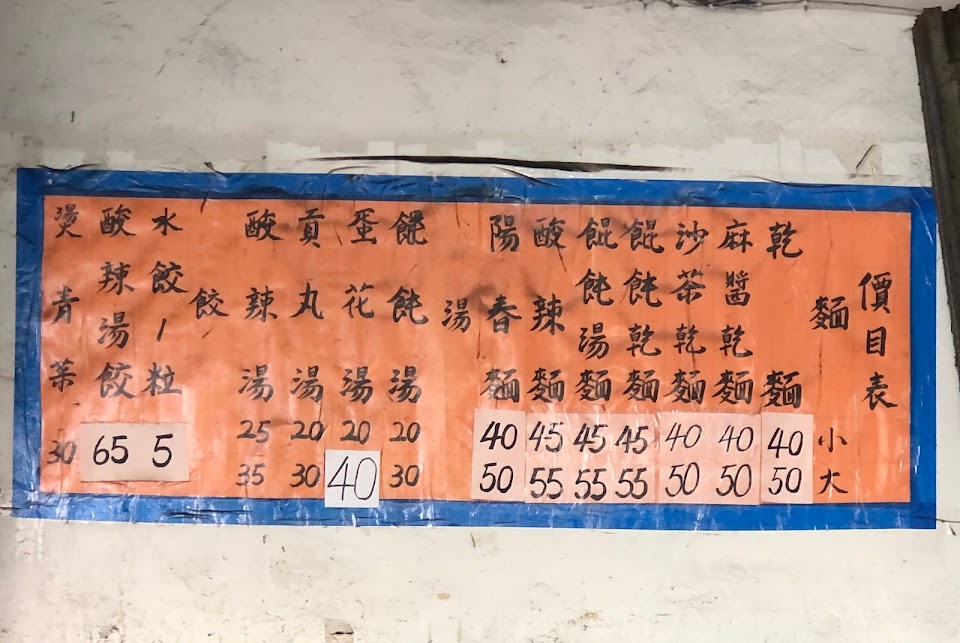 價目表
麵 小 大
乾麵 40 50
麻醬乾麵 40 50
沙茶乾麵 40 50
餛飩乾麵 45 55
餛飩湯麵 45 55
酸辣麵 45 55
陽春麵 40 50
湯
餛飩湯 20 30
蛋花湯 20 40
貢丸湯 20 30
酸辣湯 25 35
餃
水餃1粒 5
酸辣湯餃 65
燙青菜 30